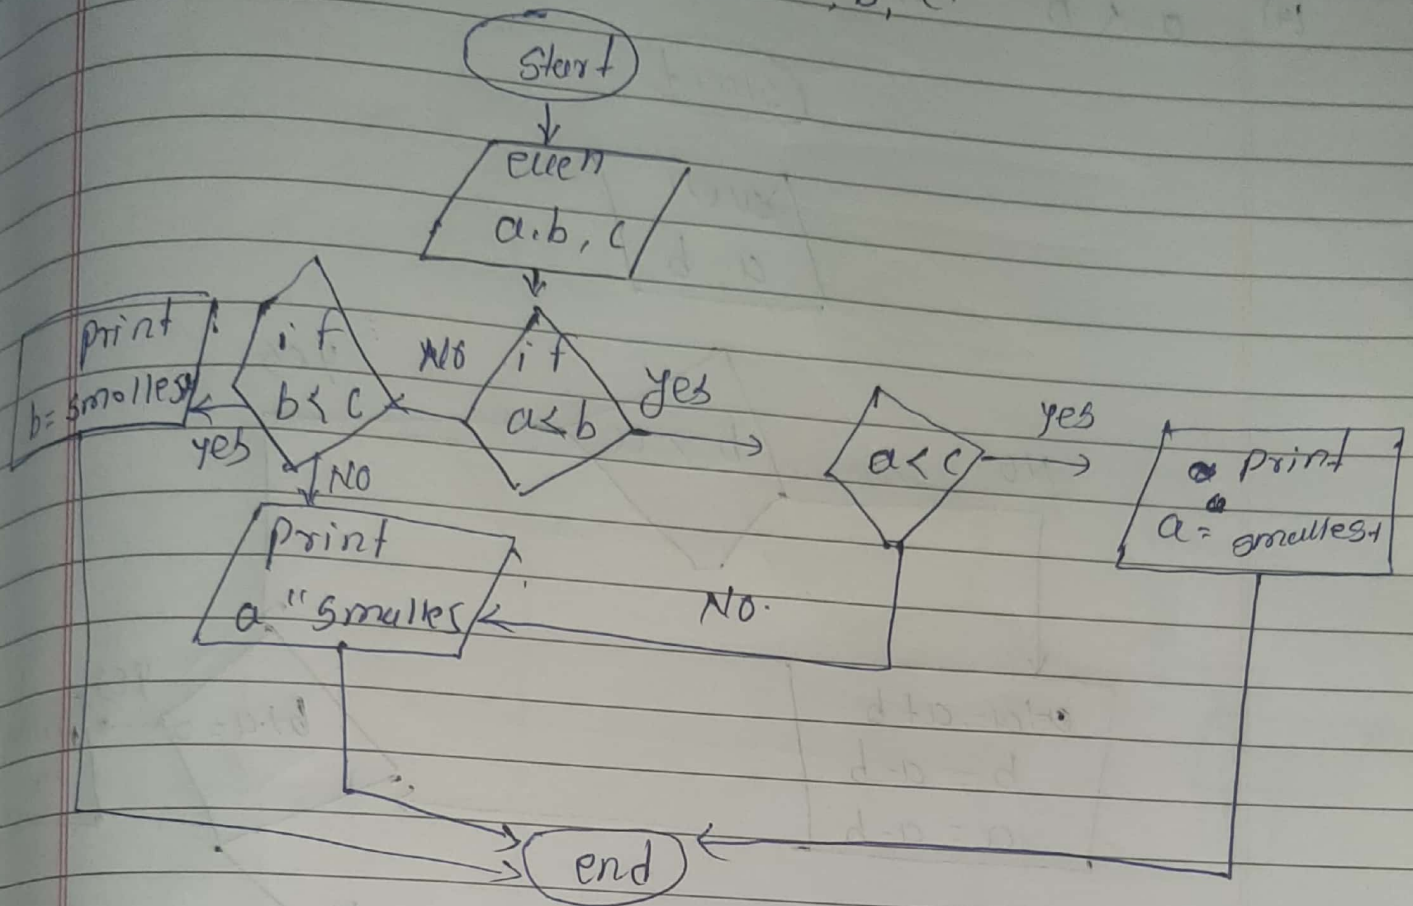 Start
a.b, c
if
a<b
No
yes
if
b< c
yes
print
b= smallest
No
print
a " smalles
a< c
yes
print
a= smallest
No.
end